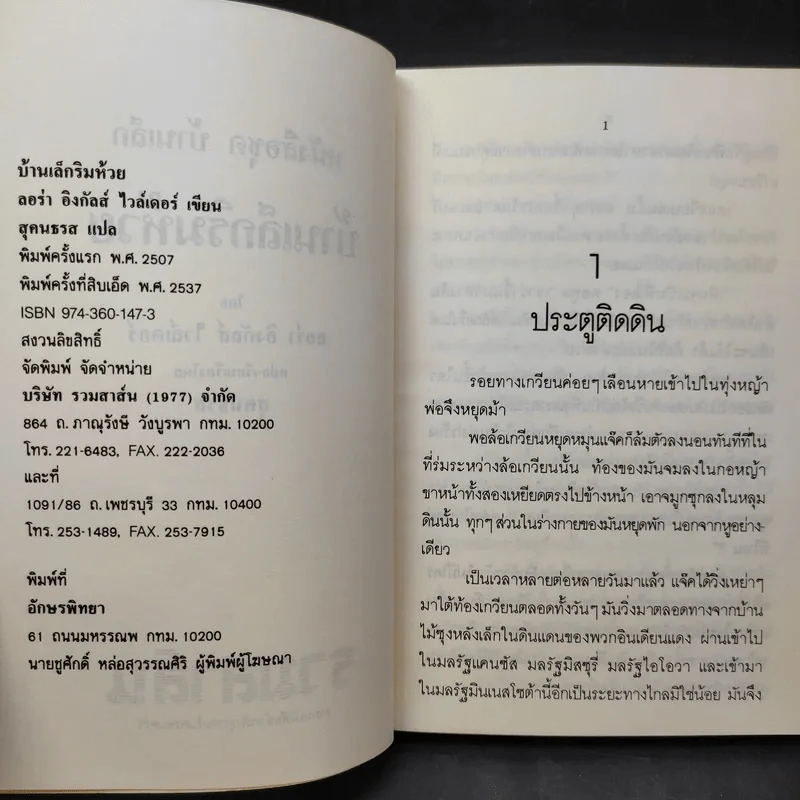 บ้านเล็กริมห้วย
ลอร่า อิงกัลส์ ไวล์เดอร์ เขียน
สุคนธรส แปล
พิมพ์ครั้งแรก พ.ศ. 2507
พิมพ์ครั้งที่สิบเอ็ด พ.ศ. 2537
ISBN 974-360-147-3
สงวนลิขสิทธิ์
จัดพิมพ์ จัดจำหน่าย
บริษัท รวมสาส์น (1977) จำกัด
864 ถ. ภาณุรังษี วังบูรพา กทม. 10200
โทร. 221-6483, FAX. 222-2036
และที่
1091/86 ถ. เพชรบุรี 33 กทม. 10400
โทร. 253-1489, FAX. 253-7915
พิมพ์ที่
อักษรพิทยา
61 ถนนมหรรณพ กทม. 10200
นายชูศักดิ์ หล่อสุวรรณศิริ ผู้พิมพ์ผู้โฆษณา
1
1
ประตูติดดิน
รอยทางเกวียนค่อยๆ เลือนหายเข้าไปในทุ่งหญ้า
พ่อจึงหยุดม้า
พอล้อเกวียนหยุดหมุนแจ๊คก็ล้มตัวลงนอนทันทีที่ใน
ที่ร่มระหว่างล้อเกวียนนั้น ท้องของมันจมลงในกอหญ้า
ขาหน้าทั้งสองเหยียดตรงไปข้างหน้า เอาจมูกซุกลงในหลุม
ดินนั้น ทุกๆ ส่วนในร่างกายของมันหยุดพัก นอกจากหูอย่าง-
เดียว
เป็นเวลาหลายต่อหลายวันมาแล้ว แจ๊คได้วิ่งเหย่าๆ
มาใต้ท้องเกวียนตลอดทั้งวันๆ มันวิ่งมาตลอดทางจากบ้าน
ไม้ซุงหลังเล็กในดินแดนของพวกอินเดียนแดง ผ่านเข้าไป
ในมลรัฐแคนซัส มลรัฐมิสซุรี่ มลรัฐไอโอวา และเข้ามา
ในมลรัฐมินเนสโซต้านี้อีกเป็นระยะทางไกลมิใช่น้อย มันจึง